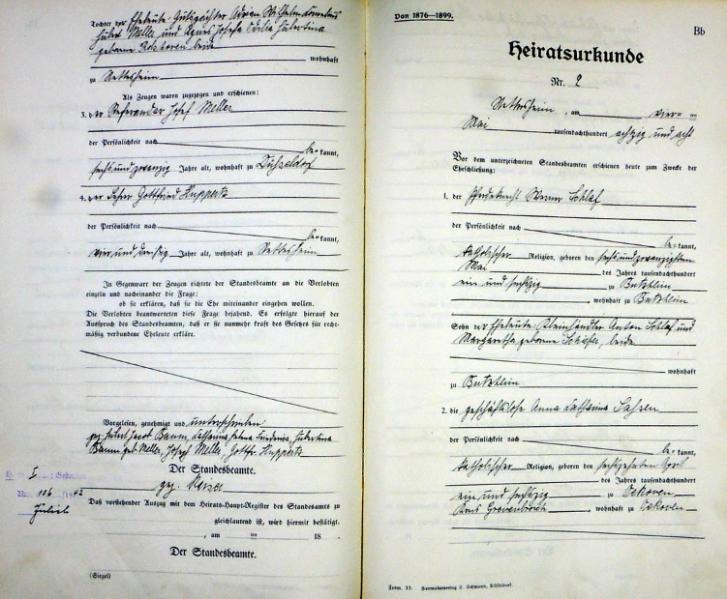 Tochter der Eheleute Gutspächter Adrian Wilhelm Cornelius
Hubert Meller und Agnes Josefa Cäcilia Hubertina
geborene beide
wohnhaft
zu Nettesheim
Als Zeugen waren zugezogen und erschienen:
3. der Referendar Josef Meller
der Persönlichkeit nach
be kannt,
sechs und zwanzig Jahre alt, wohnhaft zu Düsseldorf
4. der Lehrer Gottfried Huppertz
der Persönlichkeit nach
be kannt,
vier und dreißig Jahre alt, wohnhaft zu Nettesheim
In Gegenwart der Zeugen richtete der Standesbeamte an die Verlobten
einzeln und nacheinander die Frage:
ob sie erklären, daß sie die Ehe miteinander eingehen wollen.
Die Verlobten beantworteten diese Frage bejahend. Es erfolgte hierauf der
Ausspruch des Standesbeamten, daß er sie nunmehr kraft des Gesetzes für recht-
mäßig verbundene Eheleute erkläre.
Vorgelesen, genehmigt und unterschrieben
gez. Hubert Jacob Baum, Catharina Helena Hubertina
Baum geb. Meller, Josef Meller, Gottfr. Huppertz
Der Standesbeamte.
gez.
I
106
Jülich
Daß vorstehender Auszug mit dem Heirats-Haupt-Register des Standesamts zu
gleichlautend ist, wird hiermit bestätigt.
, am ten 18
Der Standesbeamte.
(Siegel)
Von 1876—1899.
Bb
Heiratsurkunde
Nr. 2
Nettesheim, am vier ten
Mai tausendachthundert achtzig und acht
Vor dem unterzeichneten Standesbeamten erschienen heute zum Zwecke der
Eheschließung:
1. der Pferdeknecht Werner Schlaf
der Persönlichkeit nach
be kannt,
katholischer Religion, geboren den sechs und zwanzigsten
Mai des Jahres tausendachthundert
ein und sechzig zu Butzheim
wohnhaft zu Butzheim
Sohn der Eheleute Kleinhändler Anton Schlaf und
Margaretha geborene Schäfer, beide
wohnhaft
zu Butzheim
2. die geschäftslose Anna Catharina Sassen
der Persönlichkeit nach
be kannt,
katholischer Religion, geboren den sechszehnten April
des Jahres tausendachthundert
ein und sechzig zu Oekoven
Kreis Grevenbroich wohnhaft zu Oekoven